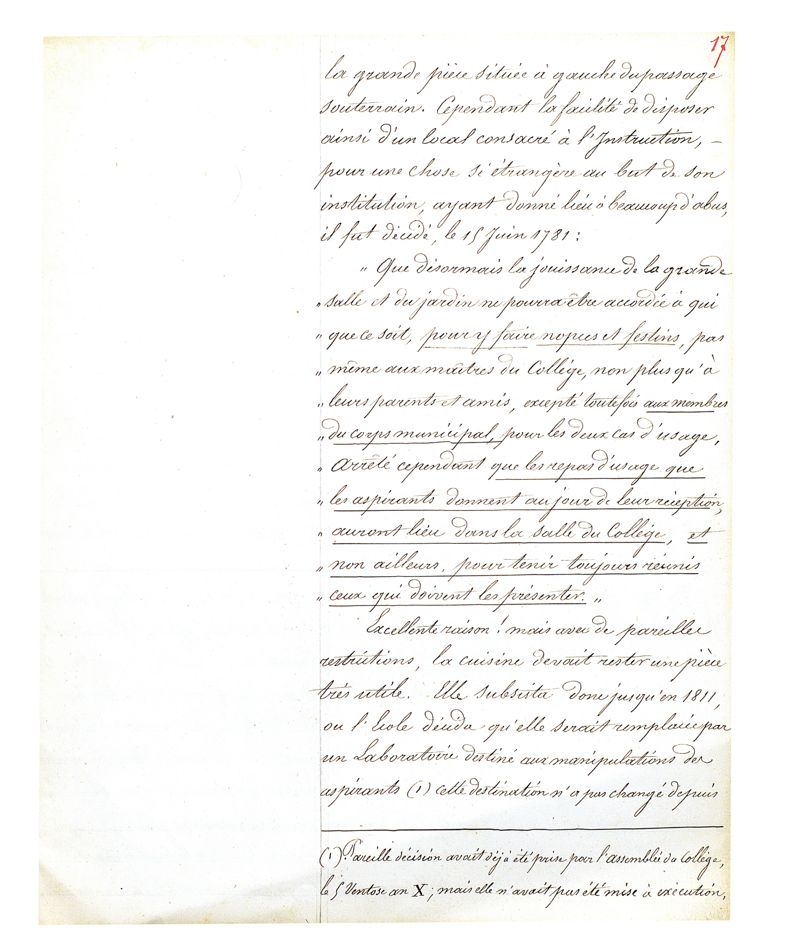 17
la grande pièce située à gauche du passage
souterrain. Cependant la facilité de disposer
ainsi d'un local consacré à l'Instruction, –
pour une chose si étrangère au but de son
institution, ayant donné lieu à beaucoup d'abus,
il fut décidé, le 15 Juin 1781 :
" Que désormais la jouissance de la grande
" salle et du jardin ne pourra être accordée à qui
" que ce soit, pour y faire nopces et festins, pas
" même aux maîtres du Collége, non plus qu'à
" leurs parents et amis, excepté toutefois aux membres
" du corps municipal, pour les deux cas d'usage,
" Arrêté cependant que les repas d'usage que
" les aspirants donnent au jour de leur réception,
" auront lieu dans la salle du Collége, et
" non ailleurs, pour tenir toujours réunis
" ceux qui doivent les présenter. "
Excellente raison ! mais avec de pareilles
restrictions, la cuisine devait rester une pièce
très utile. Elle subsista donc jusqu'en 1811,
ou l'Ecole décida qu'elle serait remplacée par
un Laboratoire destiné aux manipulations des
aspirants (1) cette destination n'a pas changé depuis
(1) Pareille décision avait déjà été prise par l'assemblée du Collège,
le 5 Ventose an X ; mais elle n'avait pas été mise à exécution.